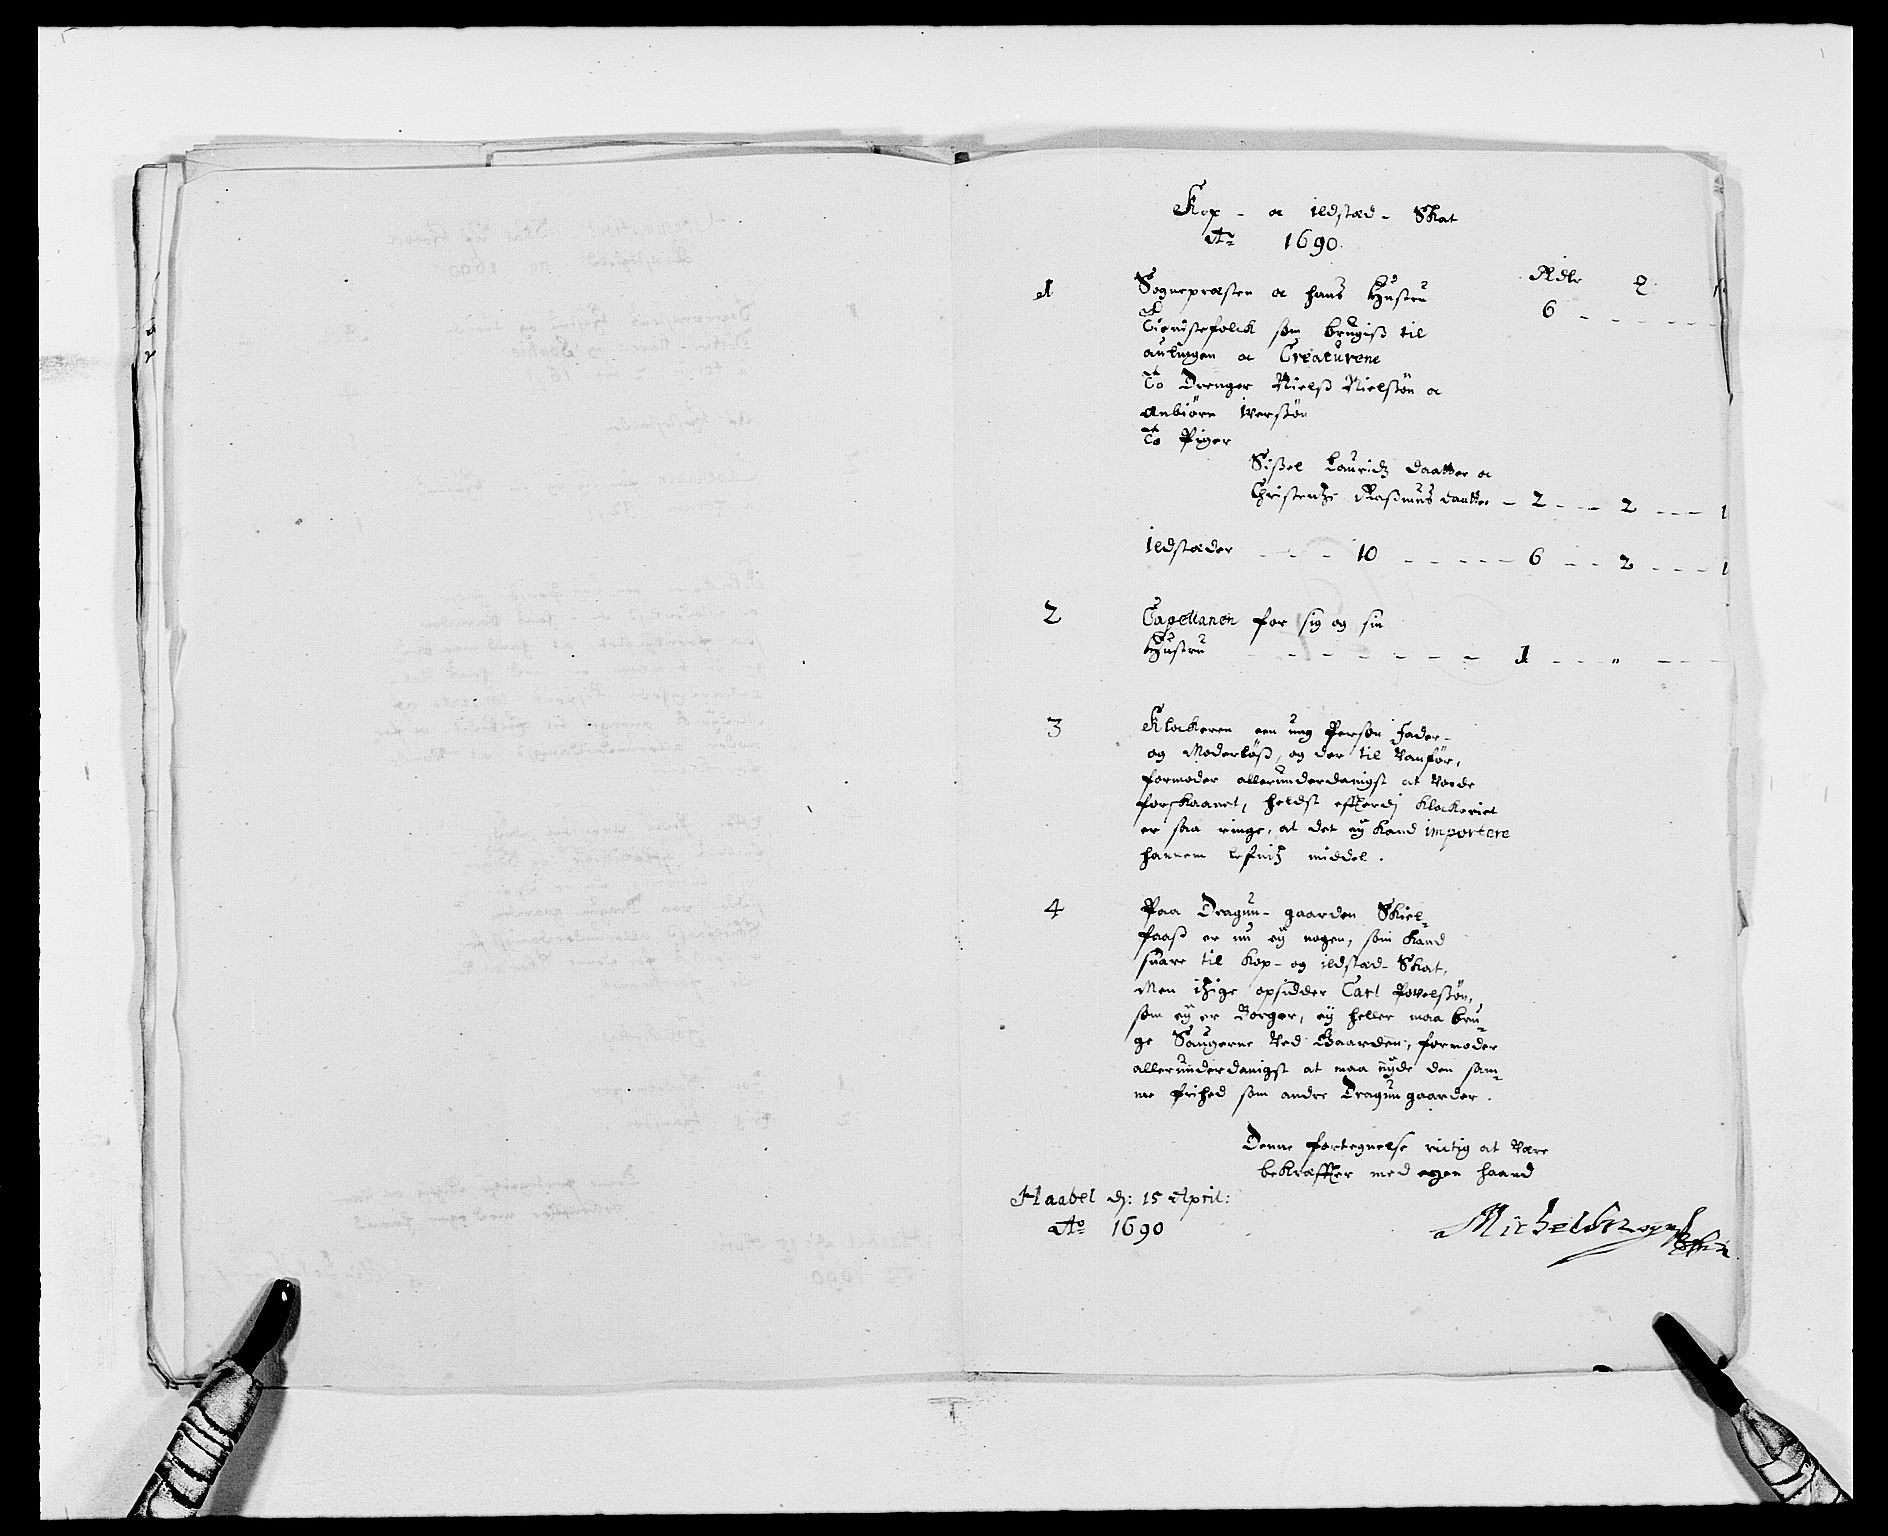 Kop - oc ildstæd - Skat
Ao 1690.
Rdlr
1 Sognepræsten oc hans Hustru 6
Tienistefolck som brugiss til
aulingen oc Creaturene
To Drenger Nielss Nielssøn oc
Anbiörn Iverssøn
To Piger
Sissel Lauridz daatter oc
Christentze Rassmus daatter - 2 - 2 - 1
ildstæder - 10 - 6 - 2 - 1
2 Capellanen for sig og sin
Hustru - 1 - "
3 Klockeren een ung Person Fader-
og Moderlöss, og der til Vanför,
formoder allerunderdanigst at vorde
forskaanet, heldst effterdj klockeriet
er saa ringe, at det ey kand importere
hannem lefnitz middel.
4 Paa Dragun-gaarden Skiel-
faass er nu ey nogen, som kand
suare til kop- og ildstæd-Skat,
Men itzige opsidder Carl Povelssøn,
som ey er Borger, ey heller maa bru-
ge Saugerne ved Gaarden, formoder
allerunderdanigst at maa nyde den sam-
me frihed som andre Dragungaarder.
Denne fortegnelse rictig at være
bekræffter med egen haand
Haabel dj: 15 April:
Ao 1690